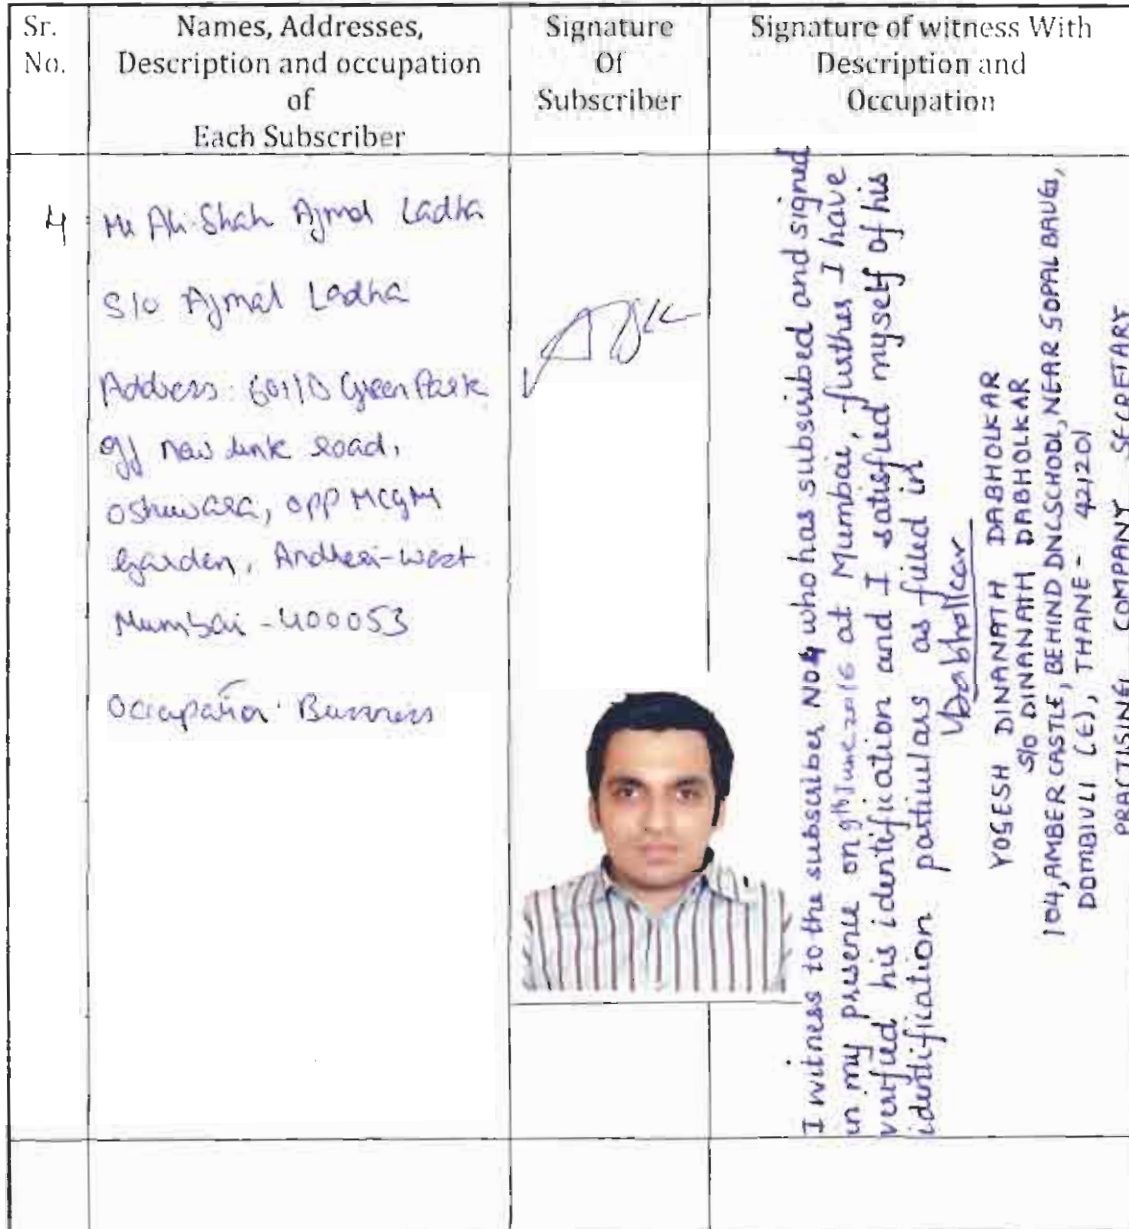 Sr.
No.
Names, Addresses,
Description and occupation
of
Each Subscriber
Signature
Of
Subscriber
Signature of witness With
Description and
Occupation
4
Mr Ali Shah Ajmal Ladha
S/o Ajmal Ladha
Address: 601/D Green Park
off new link road,
oshiwara, opp MCGM
Garden, Andheri-west
Mumbai - 400053
Occupation Business
I witness to the subscriber NO 4 who has subscribed and signed
in my presence on 9th June 2016 at Mumbai, further I have
verified his identification and I satisfied myself of his
identification particulars as filled in
YDabholkar
YOGESH DINANATH DABHOLKAR
S/O DINANATH DABHOLKAR
104, AMBER CASTLE, BEHIND DNCSCHOOL, NEAR GOPAL BAUG,
DOMBIVLI (E), THANE - 421201
PRACTISING COMPANY SECRETARY